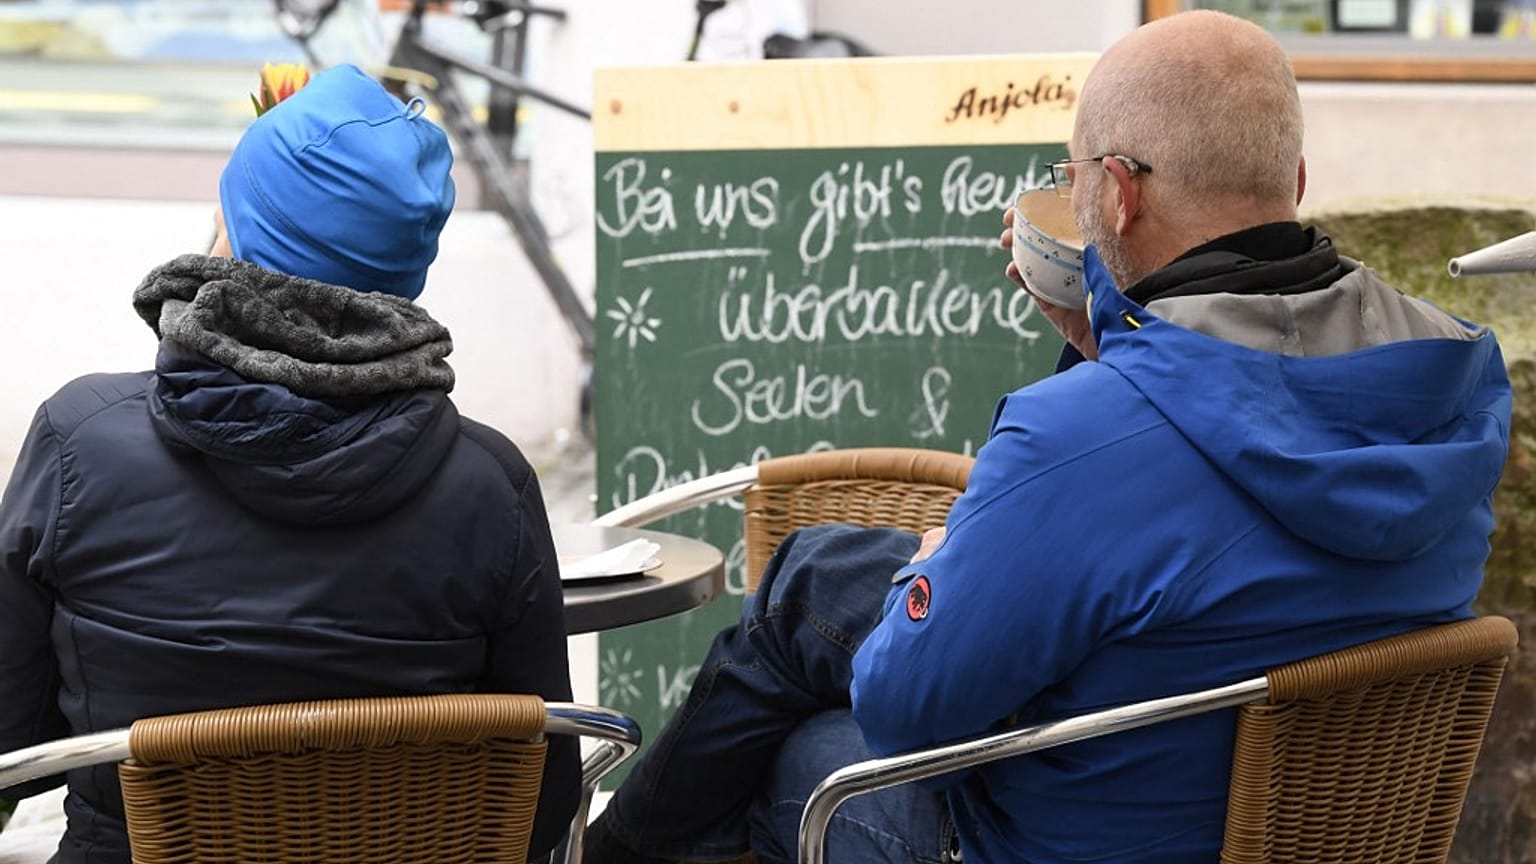 Anjola
Bei uns gibt's heute
überbackene
Seelen &
Dinkel